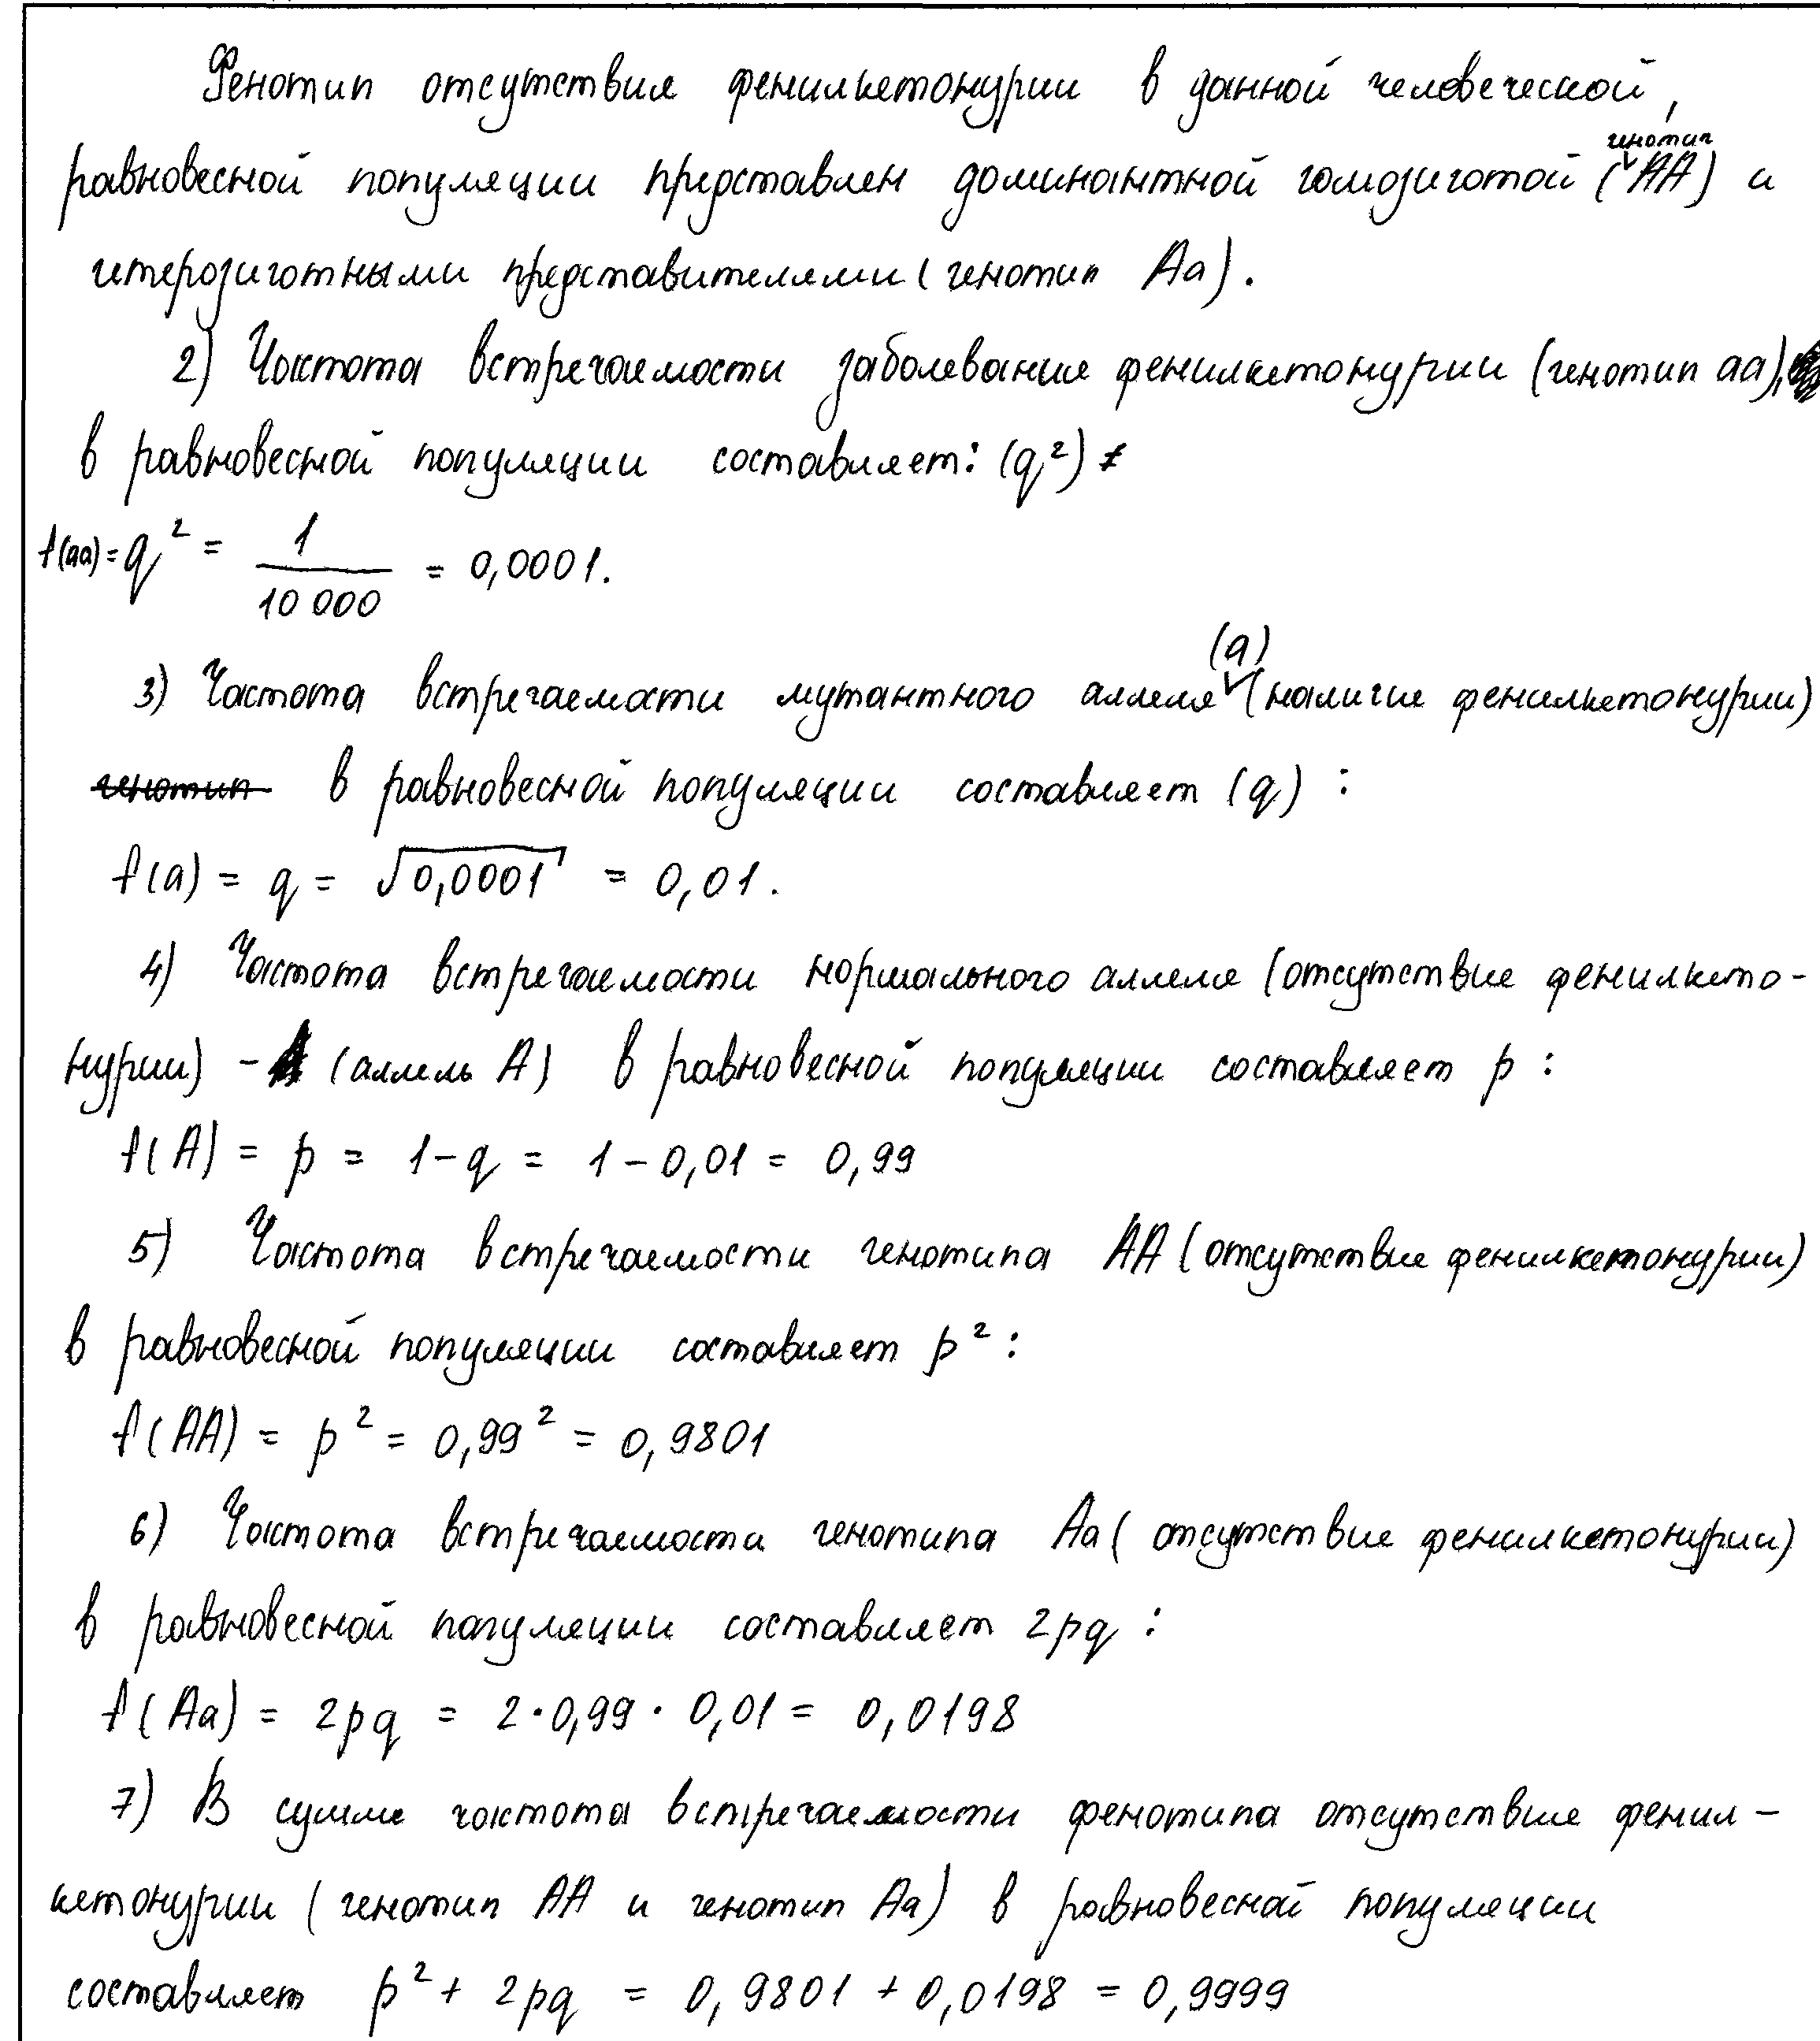 Фенотип отсутствия фенилкетонурии в данной человеческой,
равновесной популяции представлен доминантной гомозиготой (генотип АА) и
гетерозиготными представителями (генотип Аа).
2) Частота встречаемости заболевание фенилкетонурии (генотип аа),
в равновесной популяции составляет: (q²)
f(aa) = q² = 1/10 000 = 0,0001.
3) Частота встречаемости мутантного аллеля (а) (наличие фенилкетонурии)
генотип в равновесной популяции составляет (q) :
f(a) = q = √0,0001 = 0,01.
4) Частота встречаемости нормального аллеля (отсутствие фенилкето-
нурии) - (аллель А) в равновесной популяции составляет p :
f(A) = p = 1-q = 1-0,01 = 0,99
5) Частота встречаемости генотипа АА (отсутствие фенилкетонурии)
в равновесной популяции составляет p² :
f(AA) = p² = 0,99² = 0,9801
6) Частота встречаемости генотипа Аа ( отсутствие фенилкетонурии)
в равновесной популяции составляет 2pq :
f(Aa) = 2pq = 2·0,99 · 0,01 = 0,0198
7) В сумме частота встречаемости фенотипа отсутствие фенил-
кетонурии (генотип АА и генотип Аа) в равновесной популяции
составляет p² + 2pq = 0,9801 + 0,0198 = 0,9999